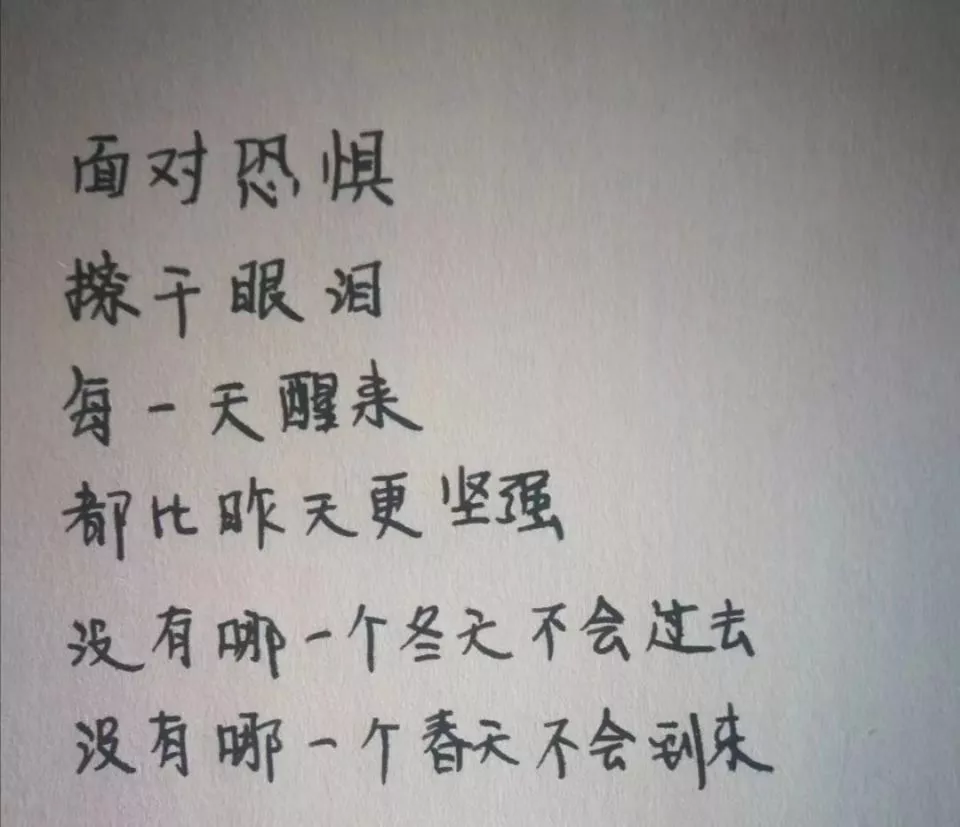 面对恐惧
擦干眼泪
每一天醒来
都比昨天更坚强
没有哪一个冬天不会过去
没有哪一个春天不会到来